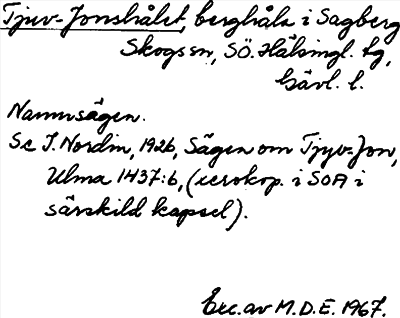 Tjuv-Jonshålet, berghåla i Sagberg
Skogssn, SÖ. Hälsingl. tg,
Gävl. l.
Namnsägen.
Se J. Nordin, 1926, Sägen om Tjyv-Jon,
Ulma 1437:6, (xerokop. i SOA i
särskild kapsel).
Exc. av M.D.E. 1967.